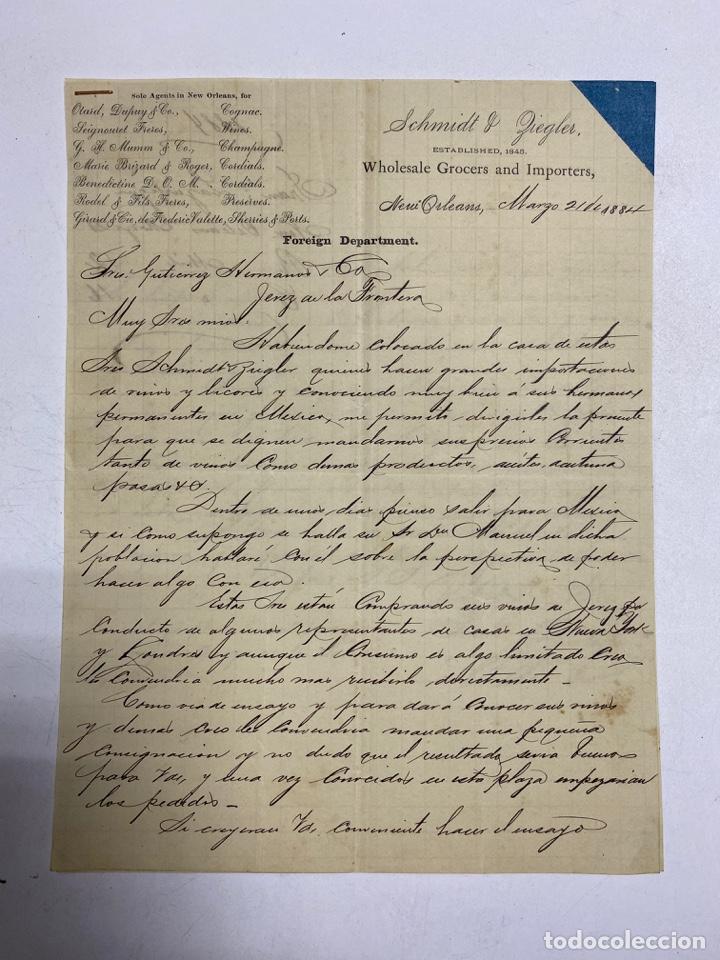 Sole Agents in New Orleans, for
Otard, Dupuy & Co., Cognac.
Seignouret Freres, Wines.
G. H. Mumm & Co., Champagne.
Marie Brizard & Roger, Cordials.
Benedictine D. O. M. Cordials.
Rodel & Fils Freres, Preserves.
Girard & Cie, de Frederic Valette, Sherries & Ports.
Schmidt & Ziegler,
ESTABLISHED, 1845.
Wholesale Grocers and Importers,
New Orleans, Marzo 21 de 1884
Foreign Department.
Sres. Gutierrez Hermanos & Co
Jerez de la Frontera
Muy Sres mios:
Habiendome colocado en la casa de estos
Sres Schmidt & Ziegler quienes hacen grandes importaciones
de vinos y licores y conociendo muy bien á sus hermanos
permanentes en Mexico, me permito dirigirles la presente
para que se dignen mandarnos sus precios corrientes
tanto de vinos como demas productos, aceites, aceituna
pasas &a.
Dentro de unos dias pienso salir para Mexico
y si como supongo se halla su Sr Dn Manuel en dicha
poblacion hablaré con él sobre la perspectiva de poder
hacer algo con esa.
Estos Sres están comprando sus vinos de Jerez por
conducto de algunos representantes de casas en Nueva York
y Londres y aunque el consumo es algo limitado creo
les convendria mucho mas recibirlo directamente -
Como via de ensayo y para dar á conocer sus vinos
y demas creo les convendria mandar una pequeña
consignacion y no dudo que el resultado seria bueno
para Vds, y una vez conocidos en esta plaza empezarian
los pedidos -
Si creyeran Vds. conveniente hacer el ensayo
todocoleccion.net